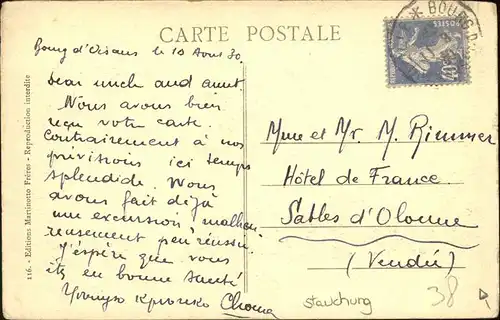 CARTE POSTALE
Bourg d'Oisans le 10 Aout 30.
Dear uncle and aunt.
Nous avons bien
reçu votre carte.
Contrairement à nos
prévisions ici temps
splendide. Nous
avons fait déjà
une excursion malheu-
reusement peu réussie.
J'espère que vous
êtes en bonne santé
116. - Editions Martinotto Frères - Reproduction interdite
* BOURG-D
POSTES
40c
Mme et Mr. M.
Hôtel de France
Sables d'Olonne
(Vendée)
38